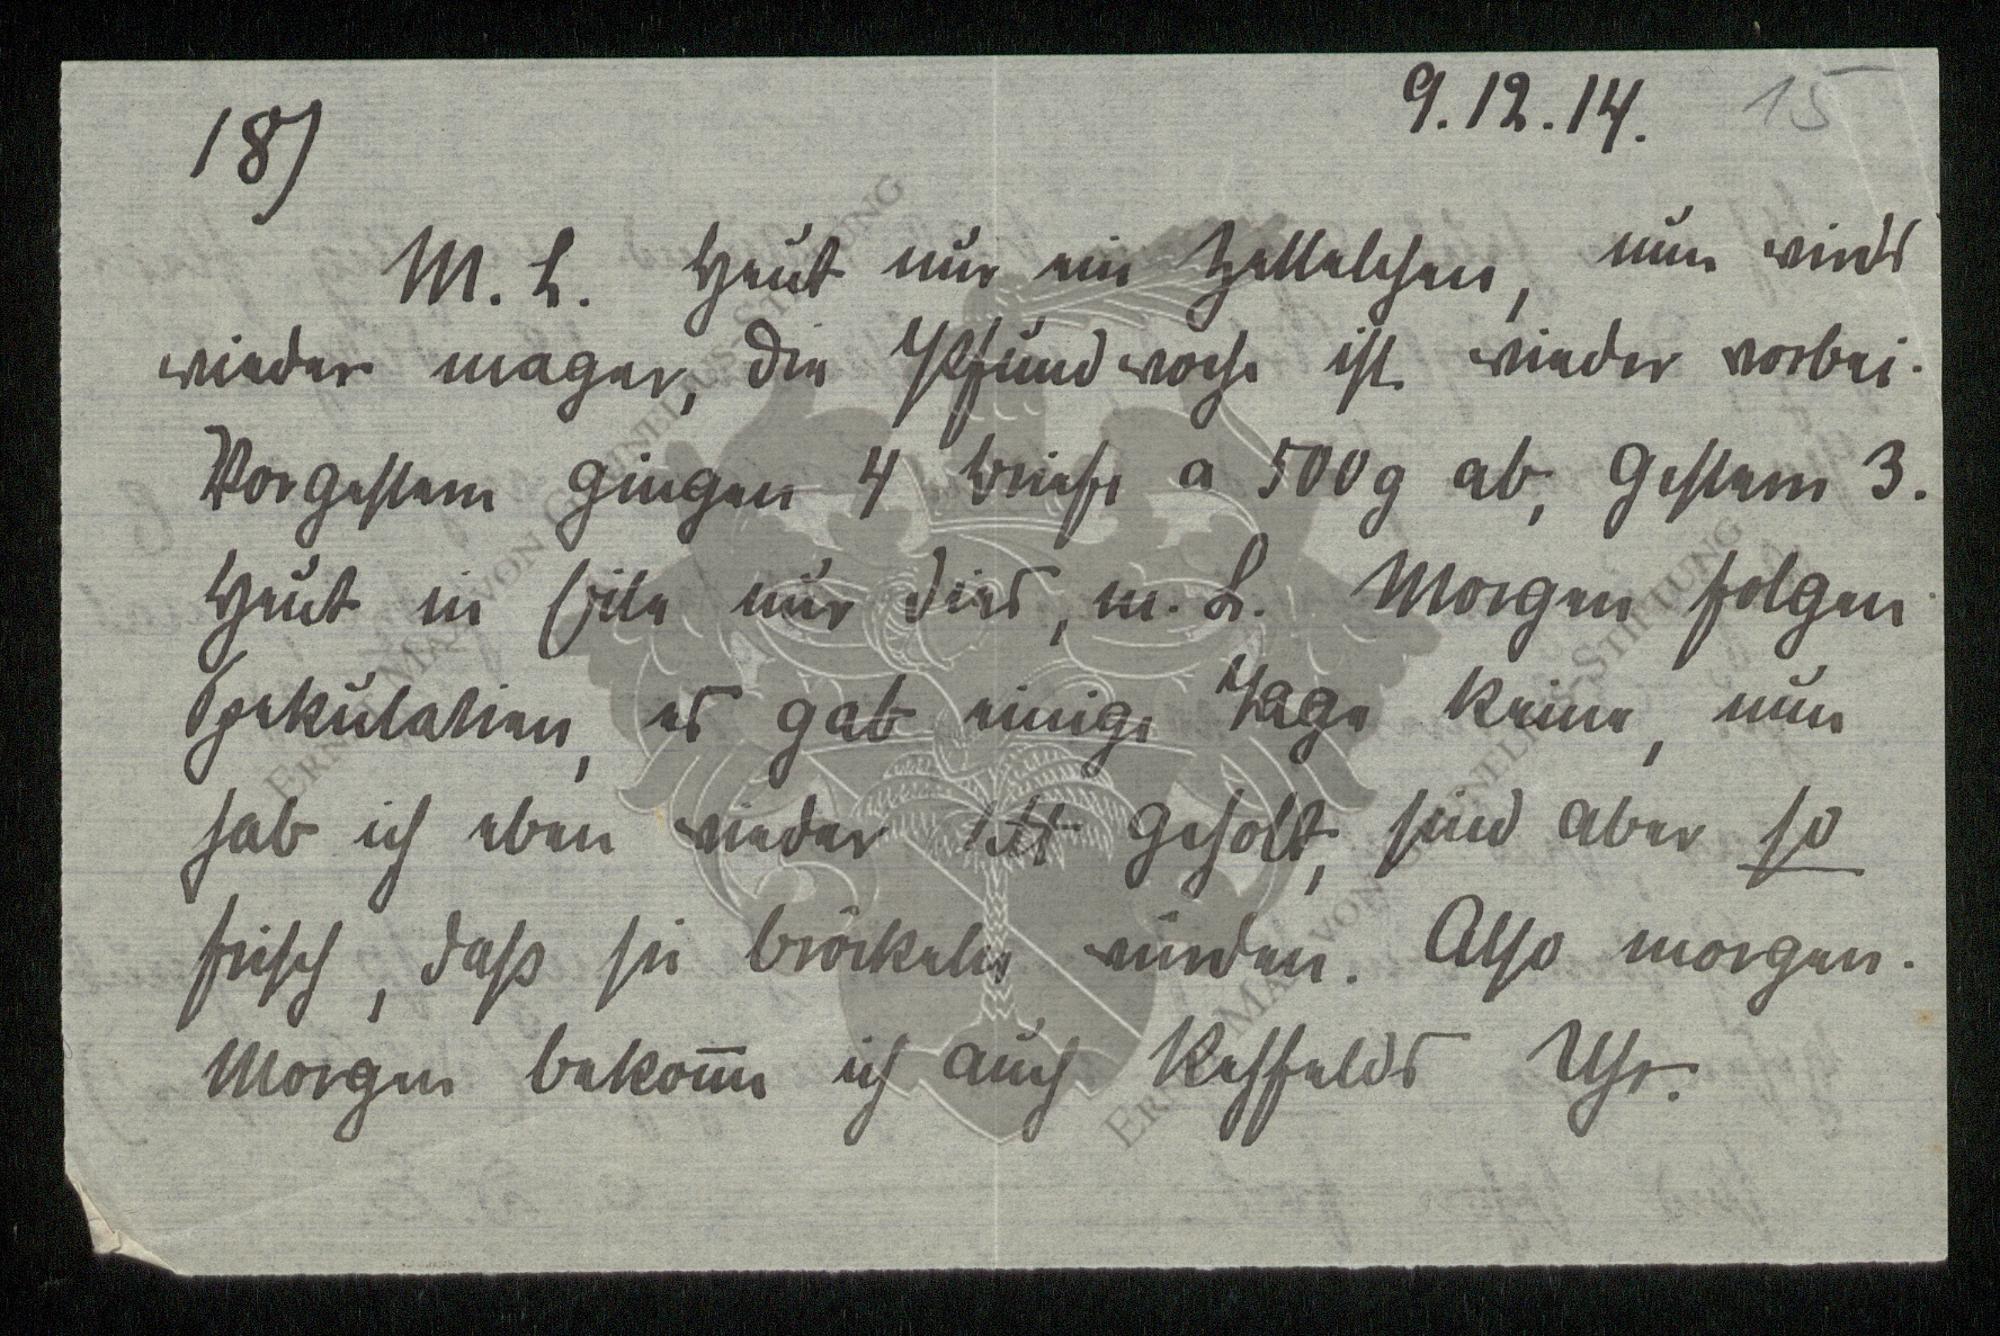 18)
9.12.14. 15
M. L. Heut nur ein Zettelchen, nun wirds
wieder mager, die Pfundwoche ist wieder vorbei.
Vorgestern gingen 4 Briefe a 500g ab, gestern 3.
Heut in Eile nur dies, m. L. Morgen folgen
Spekulatien, es gab einige Tage keine, nun
hab ich eben wieder geholt, sind aber so
frisch, daß sie bröckeln würden. Also morgen.
Morgen bekomm ich auch Uhr.
ERNST MAX VON GRUNELIUS STIFTUNG
ERNST MAX VON GRUNELIUS STIFTUNG